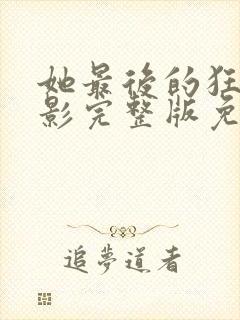 她最後的狂
影完整版免
追夢道者